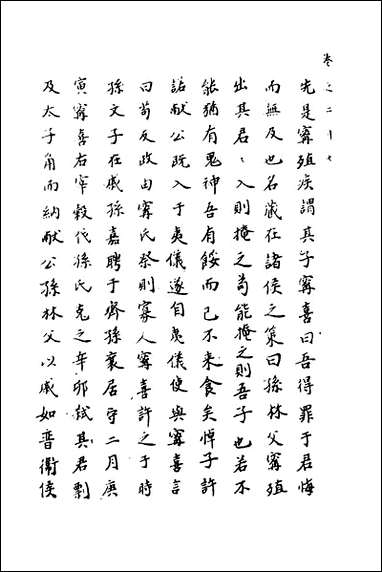 卷之二十七
先是寗殖疾謂其子寗喜曰吾得罪于君悔
而無及也名藏在諸侯之策曰孫林父寗殖
出其君〻入則掩之苟能掩之則吾子也若不
能猶有鬼神吾有餒而已不来食矣悼子許
諾献公既入于夷儀遂自夷儀使與寗喜言
曰苟反政由寗氏祭則寡人寗喜許之于時
孫文子在戚孫嘉聘于齊孫襄居守二月庚
寅寗喜右宰穀伐孫氏克之辛卯弑其君剽
及太子角而納献公孫林父以戚如晋衛侯